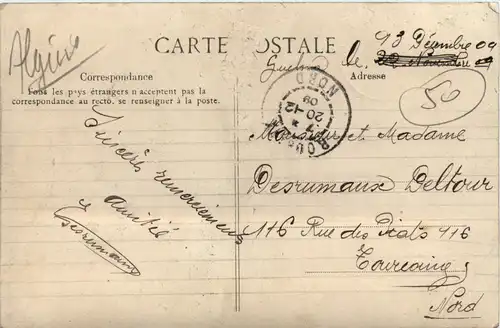 Algérie
CARTE POSTALE
Guelma le 13 Décembre 09
22 Novembre 09
Correspondance
Adresse
Tous les pays étrangers n'acceptent pas la
correspondance au recto. se renseigner à la poste.
50
NORD
20-12
09
Monsieur et Madame
Desrumaux Deltour
116 Rue des Piats 116
Tourcoing
Nord
Sincères remerciemens
et Amitié
Desrumaux